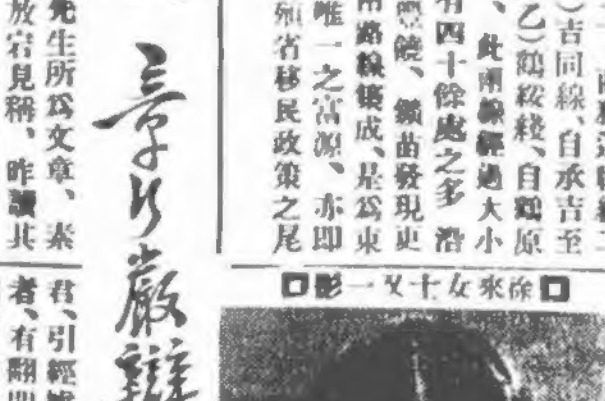 ）吉同線、自承吉至
乙）鶴綏綫、自鶴原
、此兩線經過大小
有四十餘處之多 沿
豐饒、鑛苗發現更
路線築成、是爲東
唯一之富源、亦即
殖省移民政策之尾
徐來女士又一影
章行嚴辯
先生所爲文章、素
放宕見稱、昨讀其
君、引經
者、有翻